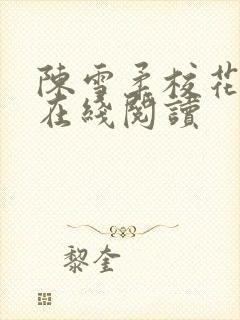 陳雪柔校花
在綫閱讀
黎奎